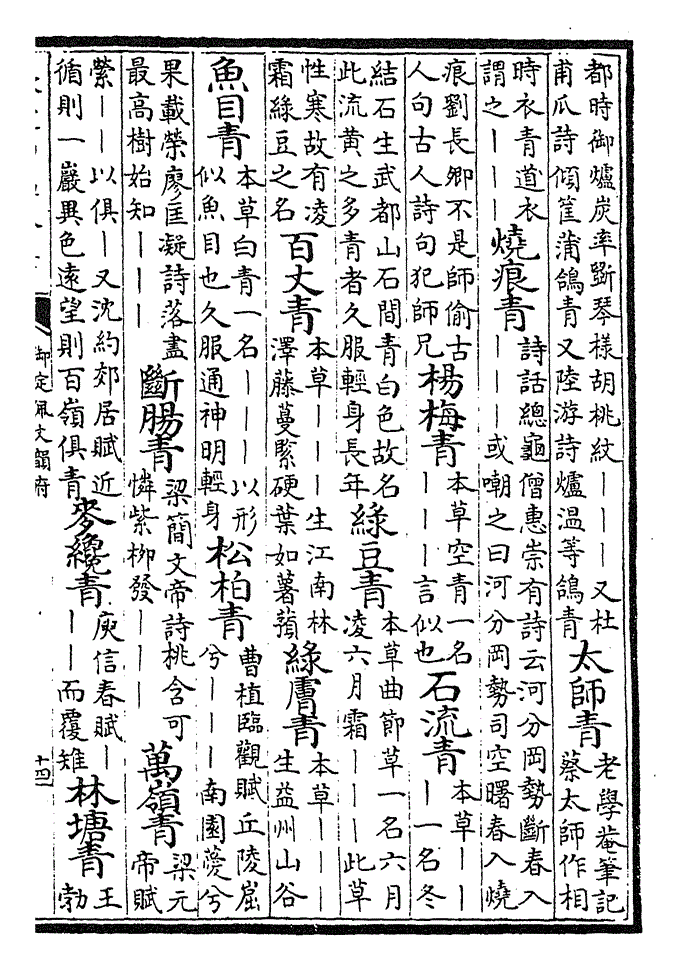 都時御爐炭率斲琴樣胡桃紋———又杜甫瓜詩傾筐蒲鴿青又陸游詩爐温等鴿青太師青老學菴筆記蔡太師作相
時衣青道衣謂之———燒痕青詩話總龜僧惠崇有詩云河分岡勢斷春入———或嘲之曰河分岡勢司空曙春入燒
痕劉長卿不是師偷古人句古人詩句犯師兄楊梅青本草空青一名———言似也石流青本草———一名冬
結石生武都山石間青白色故名此流黃之多青者久服輕身長年綠豆青本草曲節草一名六月凌六月霜———此草
性寒故有凌霜綠豆之名百丈青本草———生江南林澤藤蔓緊硬葉如薯蕷綠膚青本草———生益州山谷
魚目青本草白青一名———以形似魚目也久服通神明輕身松柏青曹植臨觀賦丘陵崛兮———南園薆兮
果載榮廖匡凝詩落盡最高樹始知———斷腸青梁簡文帝詩桃含可憐紫栁發———萬嶺青梁元帝賦
縈——以俱—又沈約郊居賦近循則一巖異色遠望則百嶺俱青麥纔青庾信春賦———而覆雉林塘青王勃
御定佩文韻府
十四